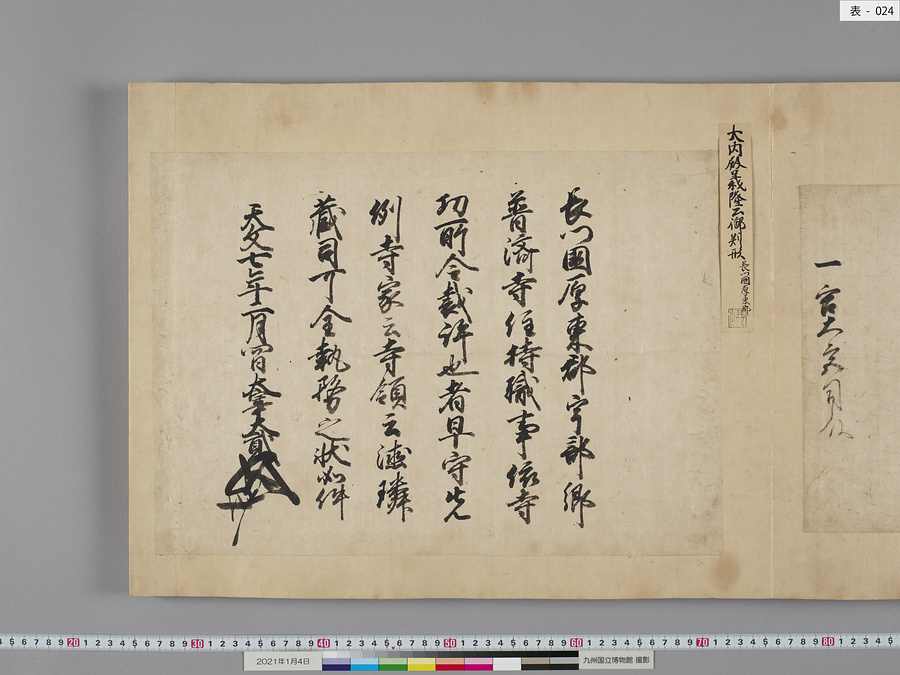 表 - 024
一宮大宮司殿
大内殿義隆公御判形 長門國厚東郡
長門國厚東郡宇部郷
普濟寺住持職事依寺
功所令裁許也者早守先
例寺家云寺領云德璘
蔵司可全執務之状如件
天文七年二月四日 大宰大貳
2021年1月4日
九州国立博物館 撮影